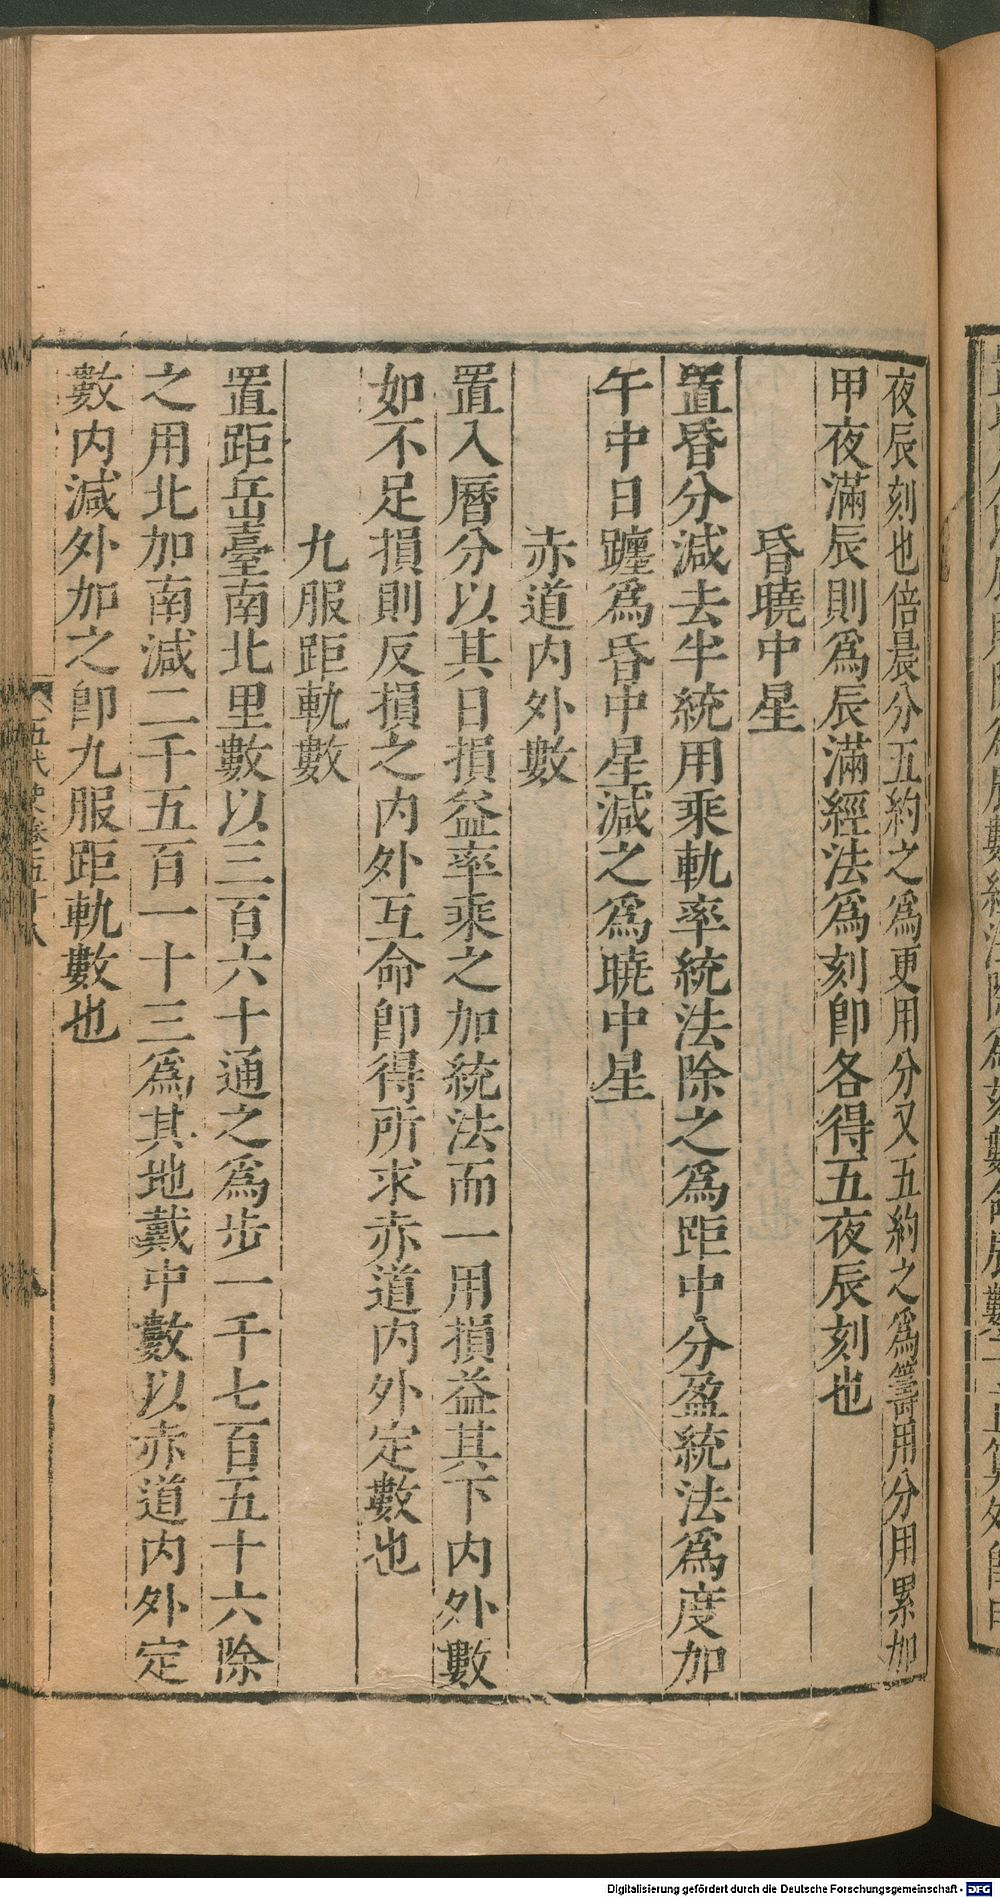 夜辰刻也倍晨分五約之爲更用分又五約之爲籌用分用累加
甲夜滿辰則爲辰滿經法爲刻卽各得五夜辰刻也
昏曉中星
置昏分減去半統用乘軌率統法除之爲距中分盈統法爲度加
午中日躔爲昏中星減之爲曉中星
赤道内外數
置入曆分以其日損益率乘之加統法而一用損益其下内外數
如不足損則反損之内外互命卽得所求赤道内外定數也
九服距軌數
置距岳臺南北里數以三百六十通之爲步一千七百五十六除
之用北加南減二千五百一十三爲其地戴中數以赤道内外定
數内減外加之卽九服距軌數也
五代史卷五十八
Digitalisierung gefördert durch die Deutsche Forschungsgemeinschaft - DFG